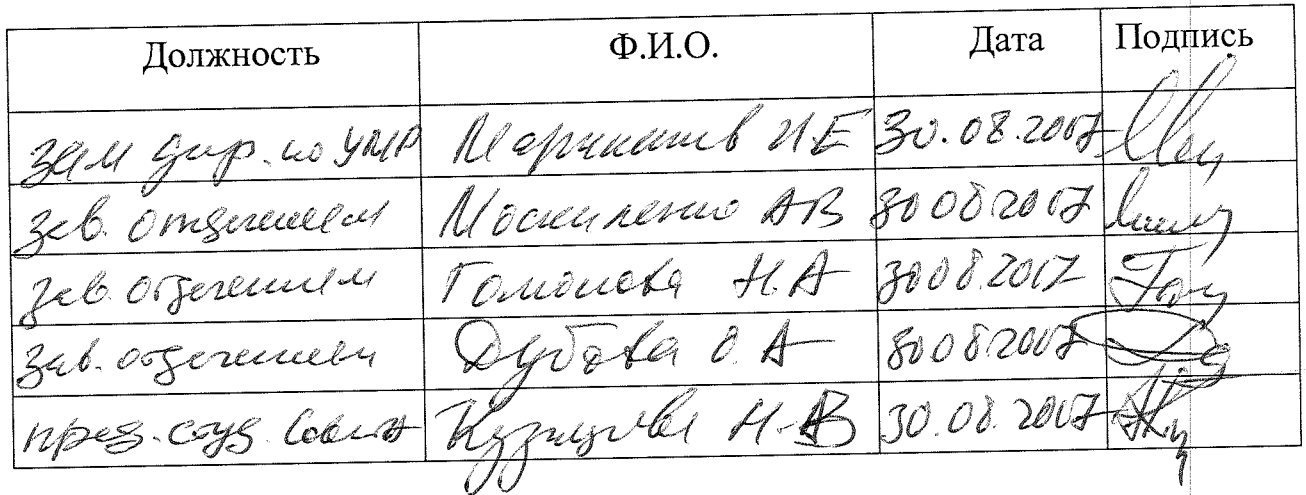 Должность Ф.И.О. Дата Подпись
зам дир. по УМР И.Е 30.08.2017
зав. отделением АВ 30 08 2017
зав. отделением Гомонова Н.А 30 08. 2017
зав. отделением Дубова О.А 30 08 2017
пред. студ. Совета Кузнцова Н.В 30.08.2017